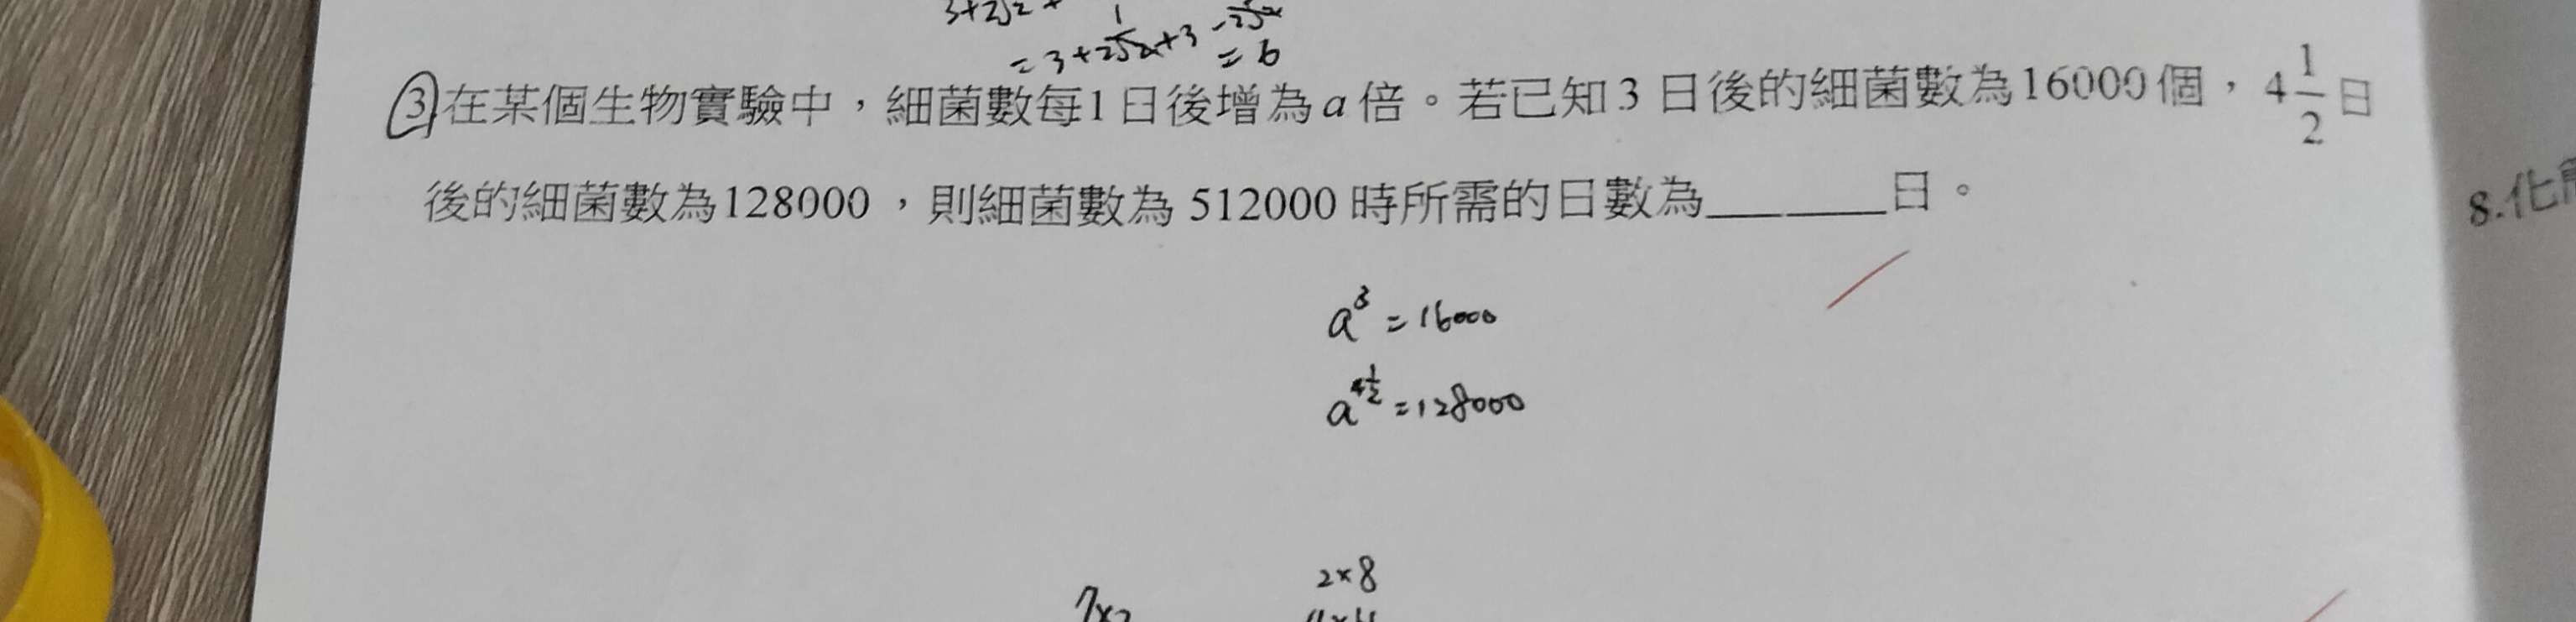 = 3+2√2+3-2√2
= 6
③在某個生物實驗中，細菌數每1日後增為a倍。若已知3日後的細菌數為16000個，4 1/2 日
後的細菌數為128000，則細菌數為 512000 時所需的日數為______日。
8.化
a³ = 16000
a^4 1/2 = 128000
2×8